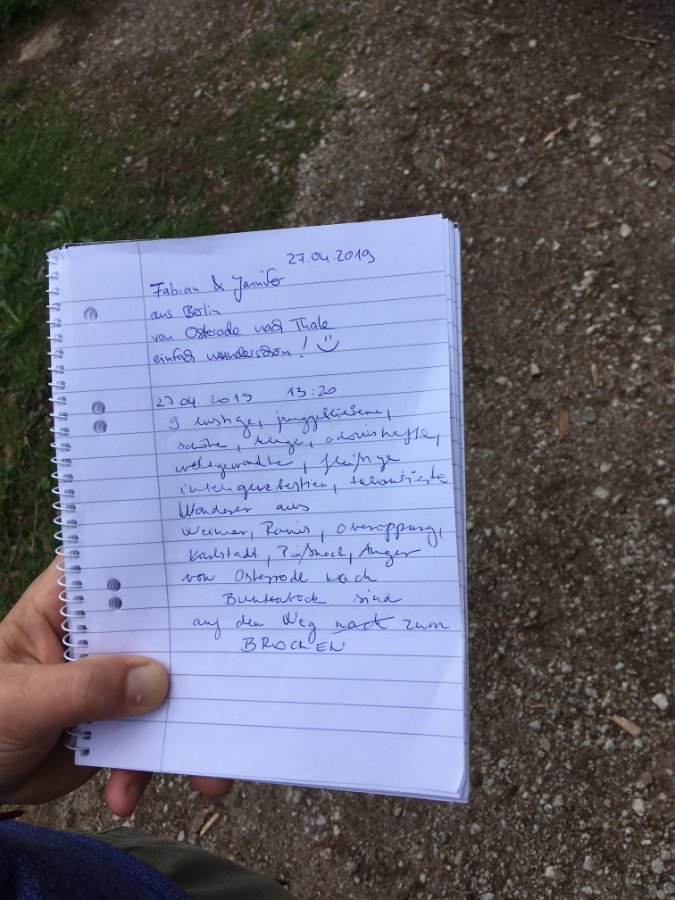 27.04.2019
Fabian & Jannifer
aus Berlin
von Osterode nach Thale
einfach wunderschön!
27.04.2019 13:20
9 lustige, junggebliebene,
schöne, kluge, adonishafte,
weltgewandte, fleißige
inteligenzbestien,
Wanderer aus
Weimar, Ranis, Oberoppurg,
Karlstadt, Pößneck, Anger
von Osterrode nach
Buntenbock sind
auf den Weg nach zum
BROCKEN